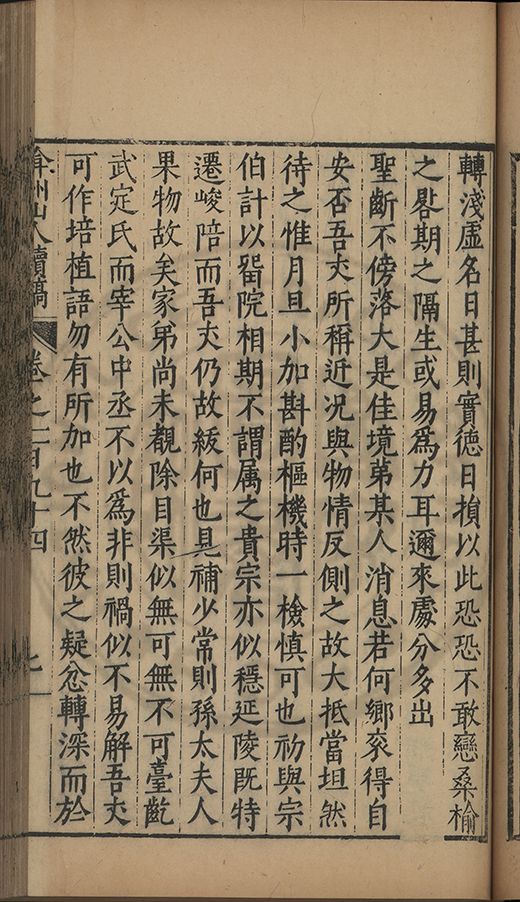 轉淺虛名日甚則實徳日損以此恐恐不敢戀桑榆
之晷期之隔生或易爲力耳邇來處分多出
聖斷不傍落大是佳境苐某人消息若何鄉衮得自
安否吾丈所稱近况與物情反側之故大抵當坦然
待之惟月旦小加斟酌樞機時一檢慎可也初與宗
伯計以畱院相期不謂属之貴宗亦似穏延陵旣特
遷峻陪而吾丈仍故級何也見補少常則孫太夫人
果物故矣家弟尚未覩除目渠似無可無不可臺齕
武定氏而宰公中丞不以爲非則禍似不易解吾丈
可作培植語勿有所加也不然彼之疑忿轉深而於
弇州山人續稿 卷之一百九十四 七